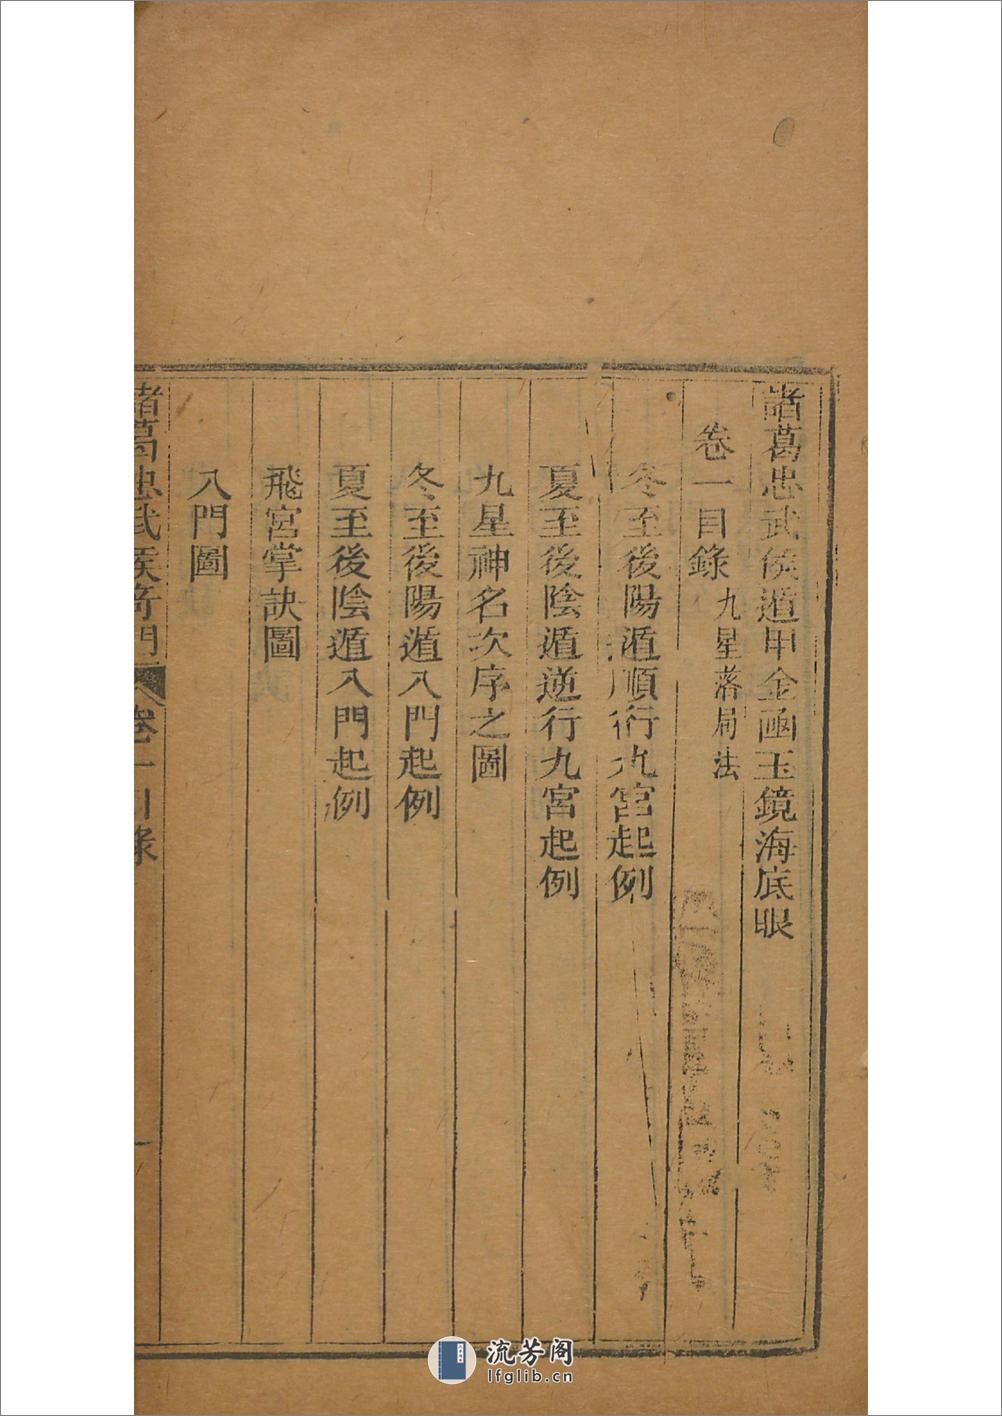 諸葛忠武侯遁甲金函玉鏡海底眼
卷一目錄 九星落局法
冬至後陽遁順行九宮起例
夏至後陰遁逆行九宮起例
九星神名次序之圖
冬至後陽遁八門起例
夏至後陰遁八門起例
飛宮掌訣圖
八門圖
諸葛忠武侯奇門 卷一目錄 一
流芳阁
lfglib.cn